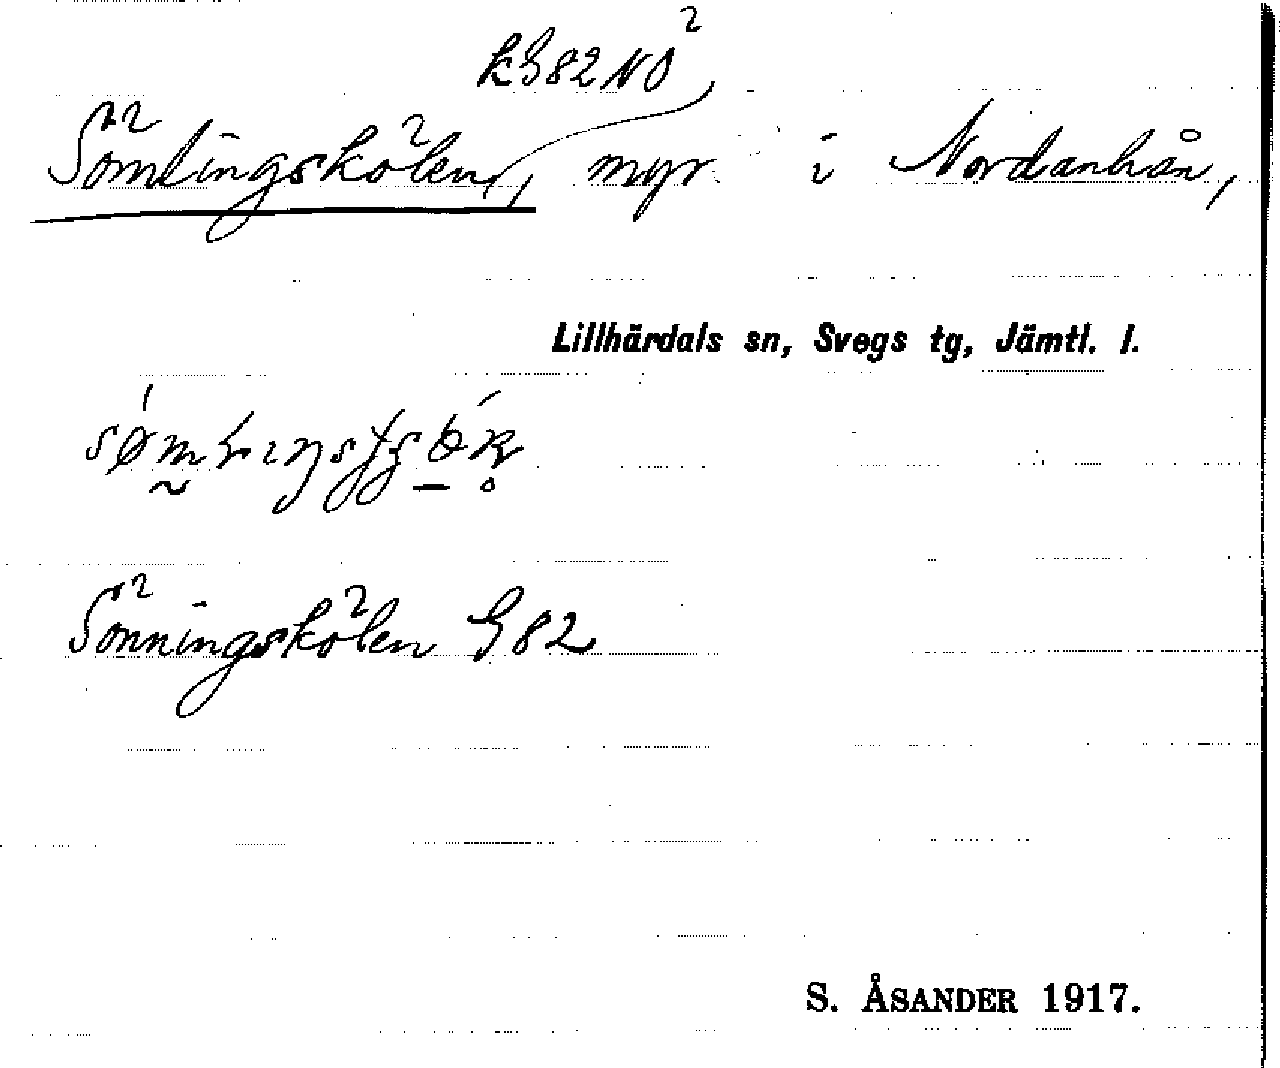 k G82 NO²
Sömlingskölen, myr i Nordanhån,
Lillhärdals sn, Svegs tg, Jämtl. l.
Sönningskölen G82
S. ÅSANDER 1917.